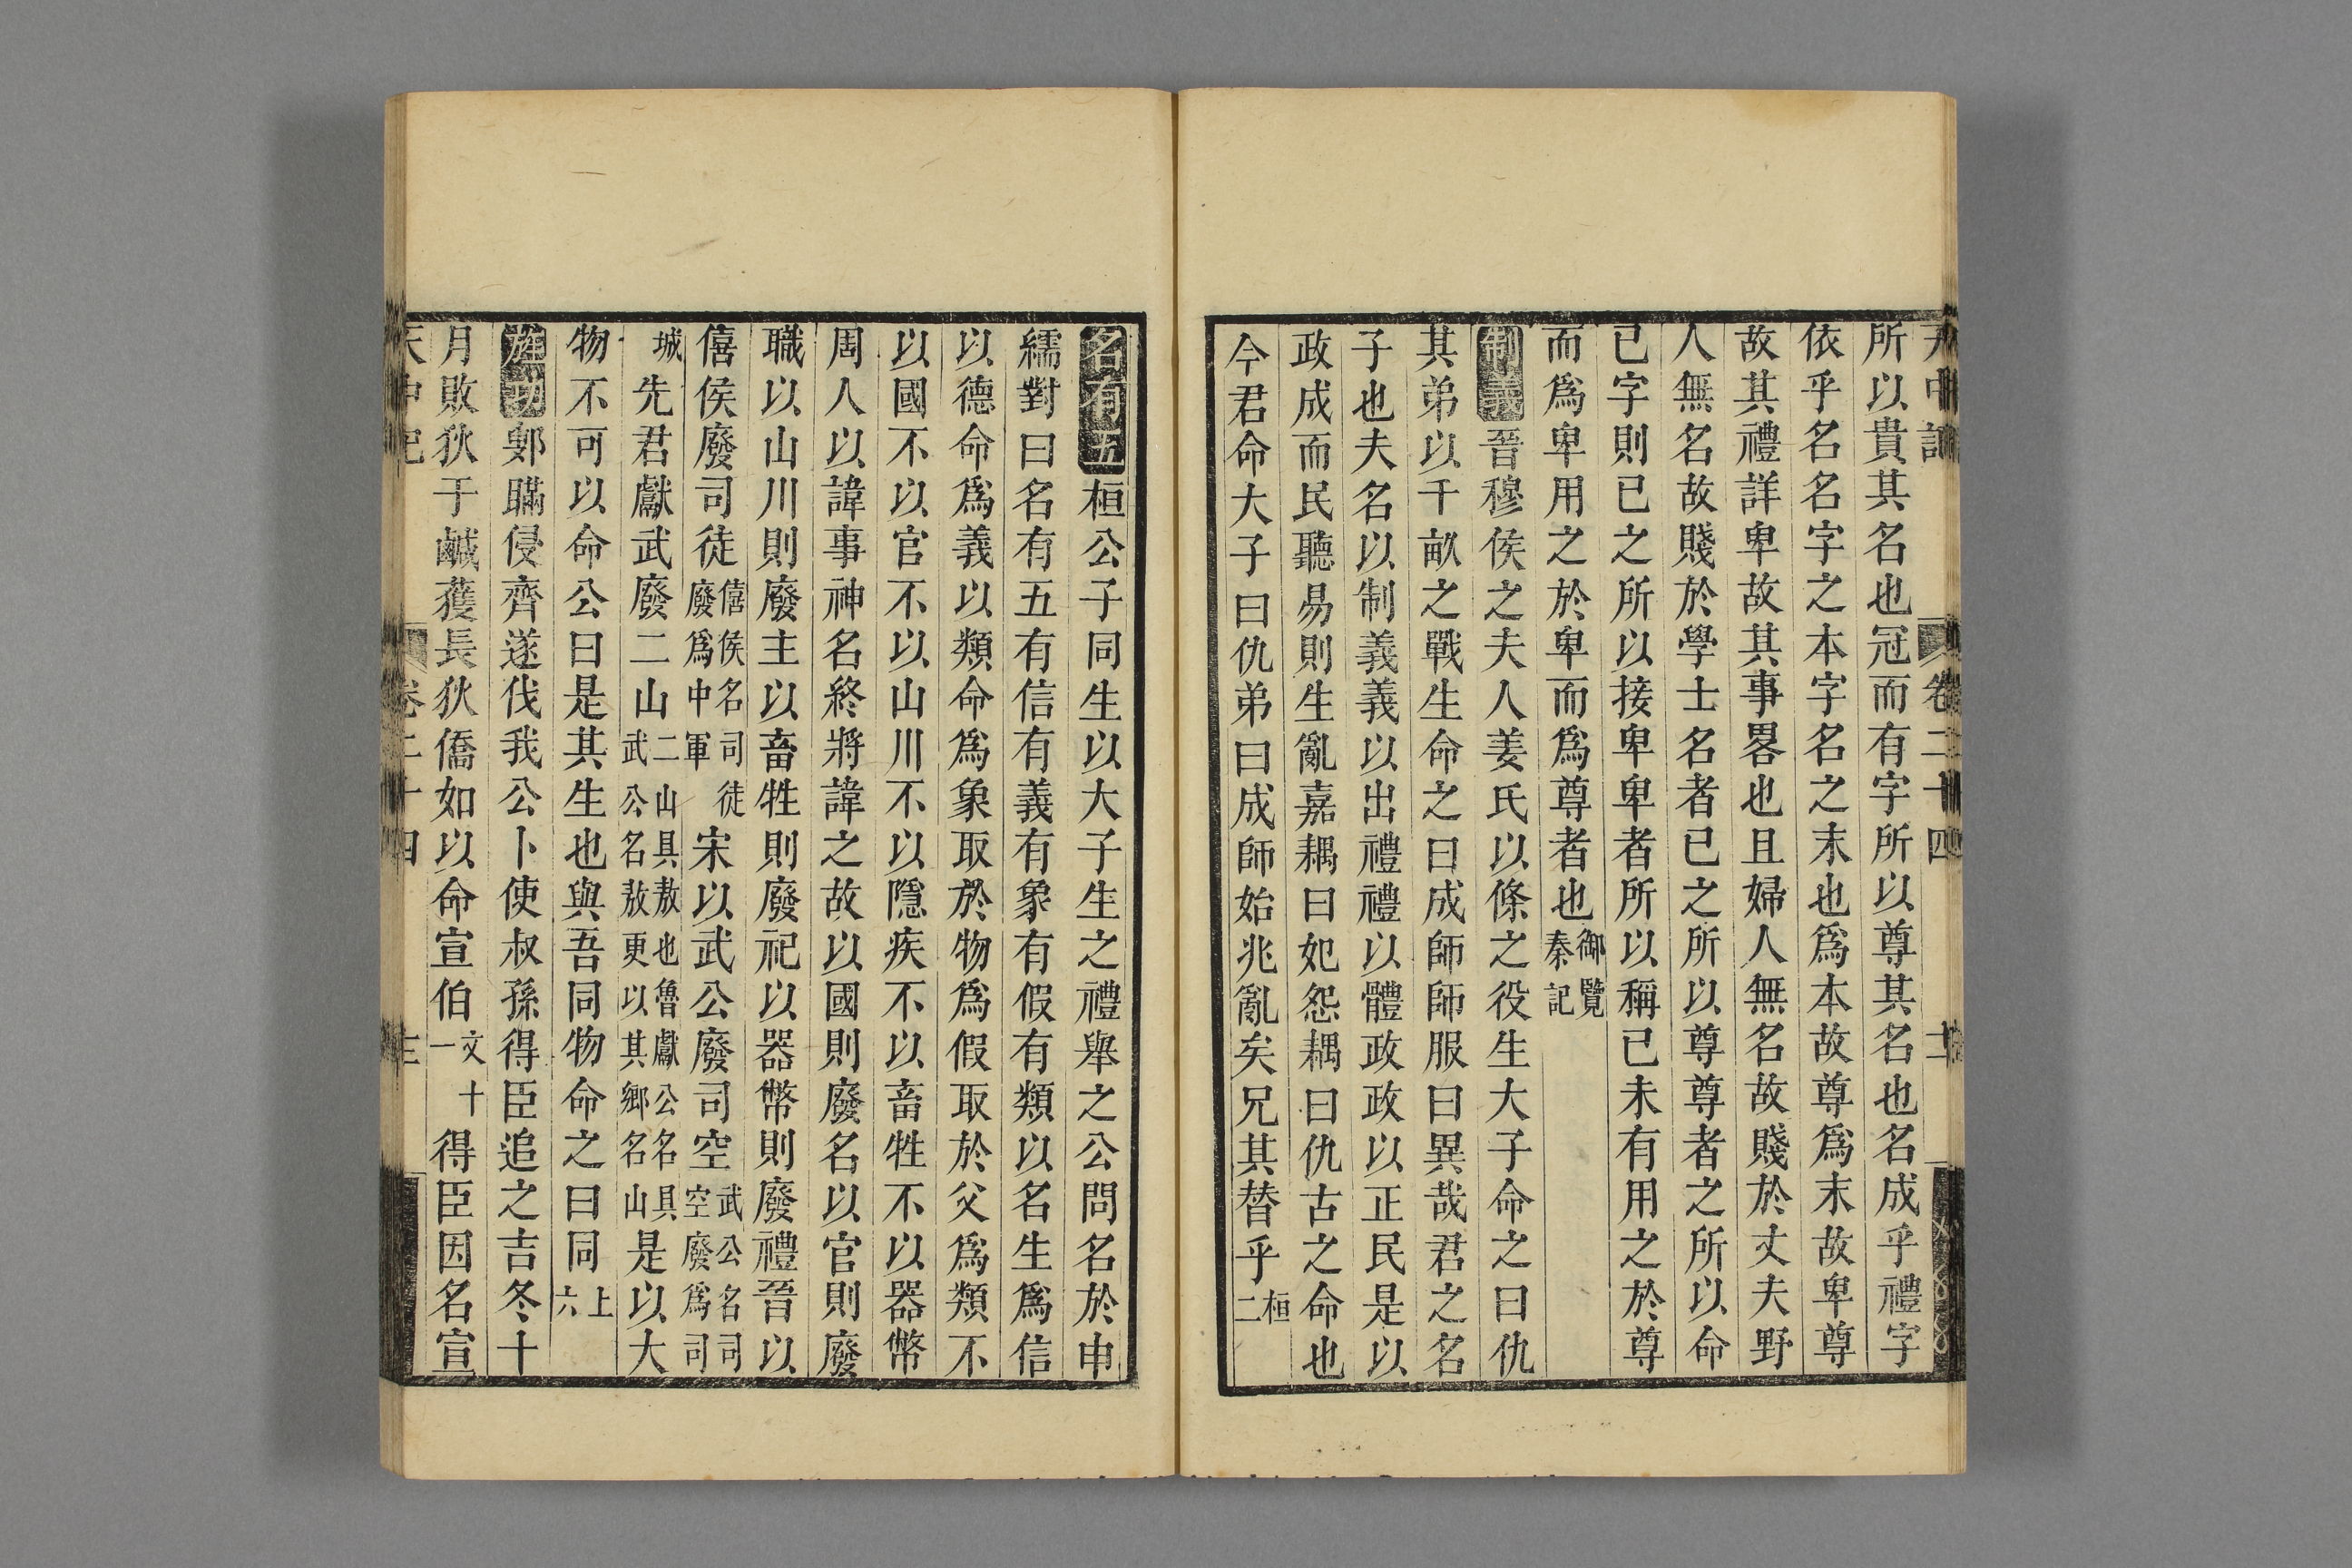 天中記 卷二十四 十二
所以貴其名也冠而有字所以尊其名也名成乎禮字
依乎名名字之本字名之末也爲本故尊爲末故卑尊
故其禮詳卑故其事畧也且婦人無名故賤於丈夫野
人無名故賤於學士名者已之所以尊尊者之所以命
已字則已之所以接卑卑者所以稱已未有用之於尊
而爲卑用之於卑而爲尊者也御覽秦記
制義晉穆侯之夫人姜氏以條之役生大子命之曰仇
其弟以千畝之戰生命之曰成師師服曰異哉君之名
子也夫名以制義義以出禮禮以體政政以正民是以
政成而民聽易則生亂嘉耦曰妃怨耦曰仇古之命也
今君命大子曰仇弟曰成師始兆亂矣兄其替乎桓二
名有五桓公子同生以大子生之禮舉之公問名於申
繻對曰名有五有信有義有象有假有類以名生爲信
以德命爲義以類命爲象取於物爲假取於父爲類不
以國不以官不以山川不以隱疾不以畜牲不以器幣
周人以諱事神名終將諱之故以國則廢名以官則廢
職以山川則廢主以畜牲則廢祀以器幣則廢禮晉以
僖侯廢司徒僖侯名司徒廢爲中軍宋以武公廢司空武公名司空廢爲司
城先君獻武廢二山二山具敖也魯獻公名具武公名敖更以其鄉名山是以大
物不可以命公曰是其生也與吾同物命之曰同上六
旌功鄋瞞侵齊遂伐我公卜使叔孫得臣追之吉冬十
月敗狄于鹹獲長狄僑如以命宣伯文十一得臣因名宣
天中記 卷二十四